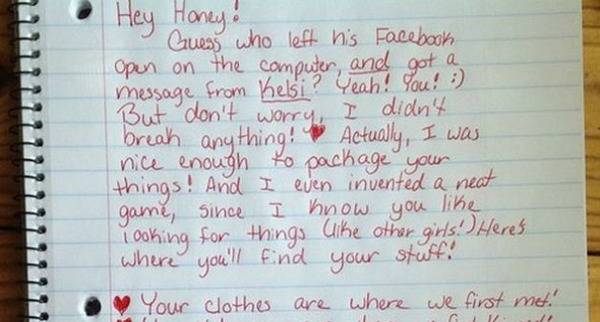 Hey Honey!
Guess who left his Facebook
open on the computer, and got a
message from Kelsi? Yeah! You! :)
But don't worry, I didn't
break anything! ♥ Actually, I was
nice enough to package your
things! And I even invented a neat
game, since I know you like
looking for things (like other girls!) Here's
where you'll find your stuff!
♥ Your clothes are where we first met!